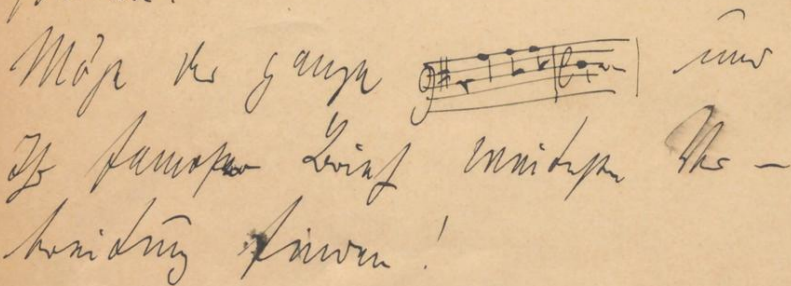 Möge der ganze und
Ihr famoser Brief weiteste Ver-
breitung finden!